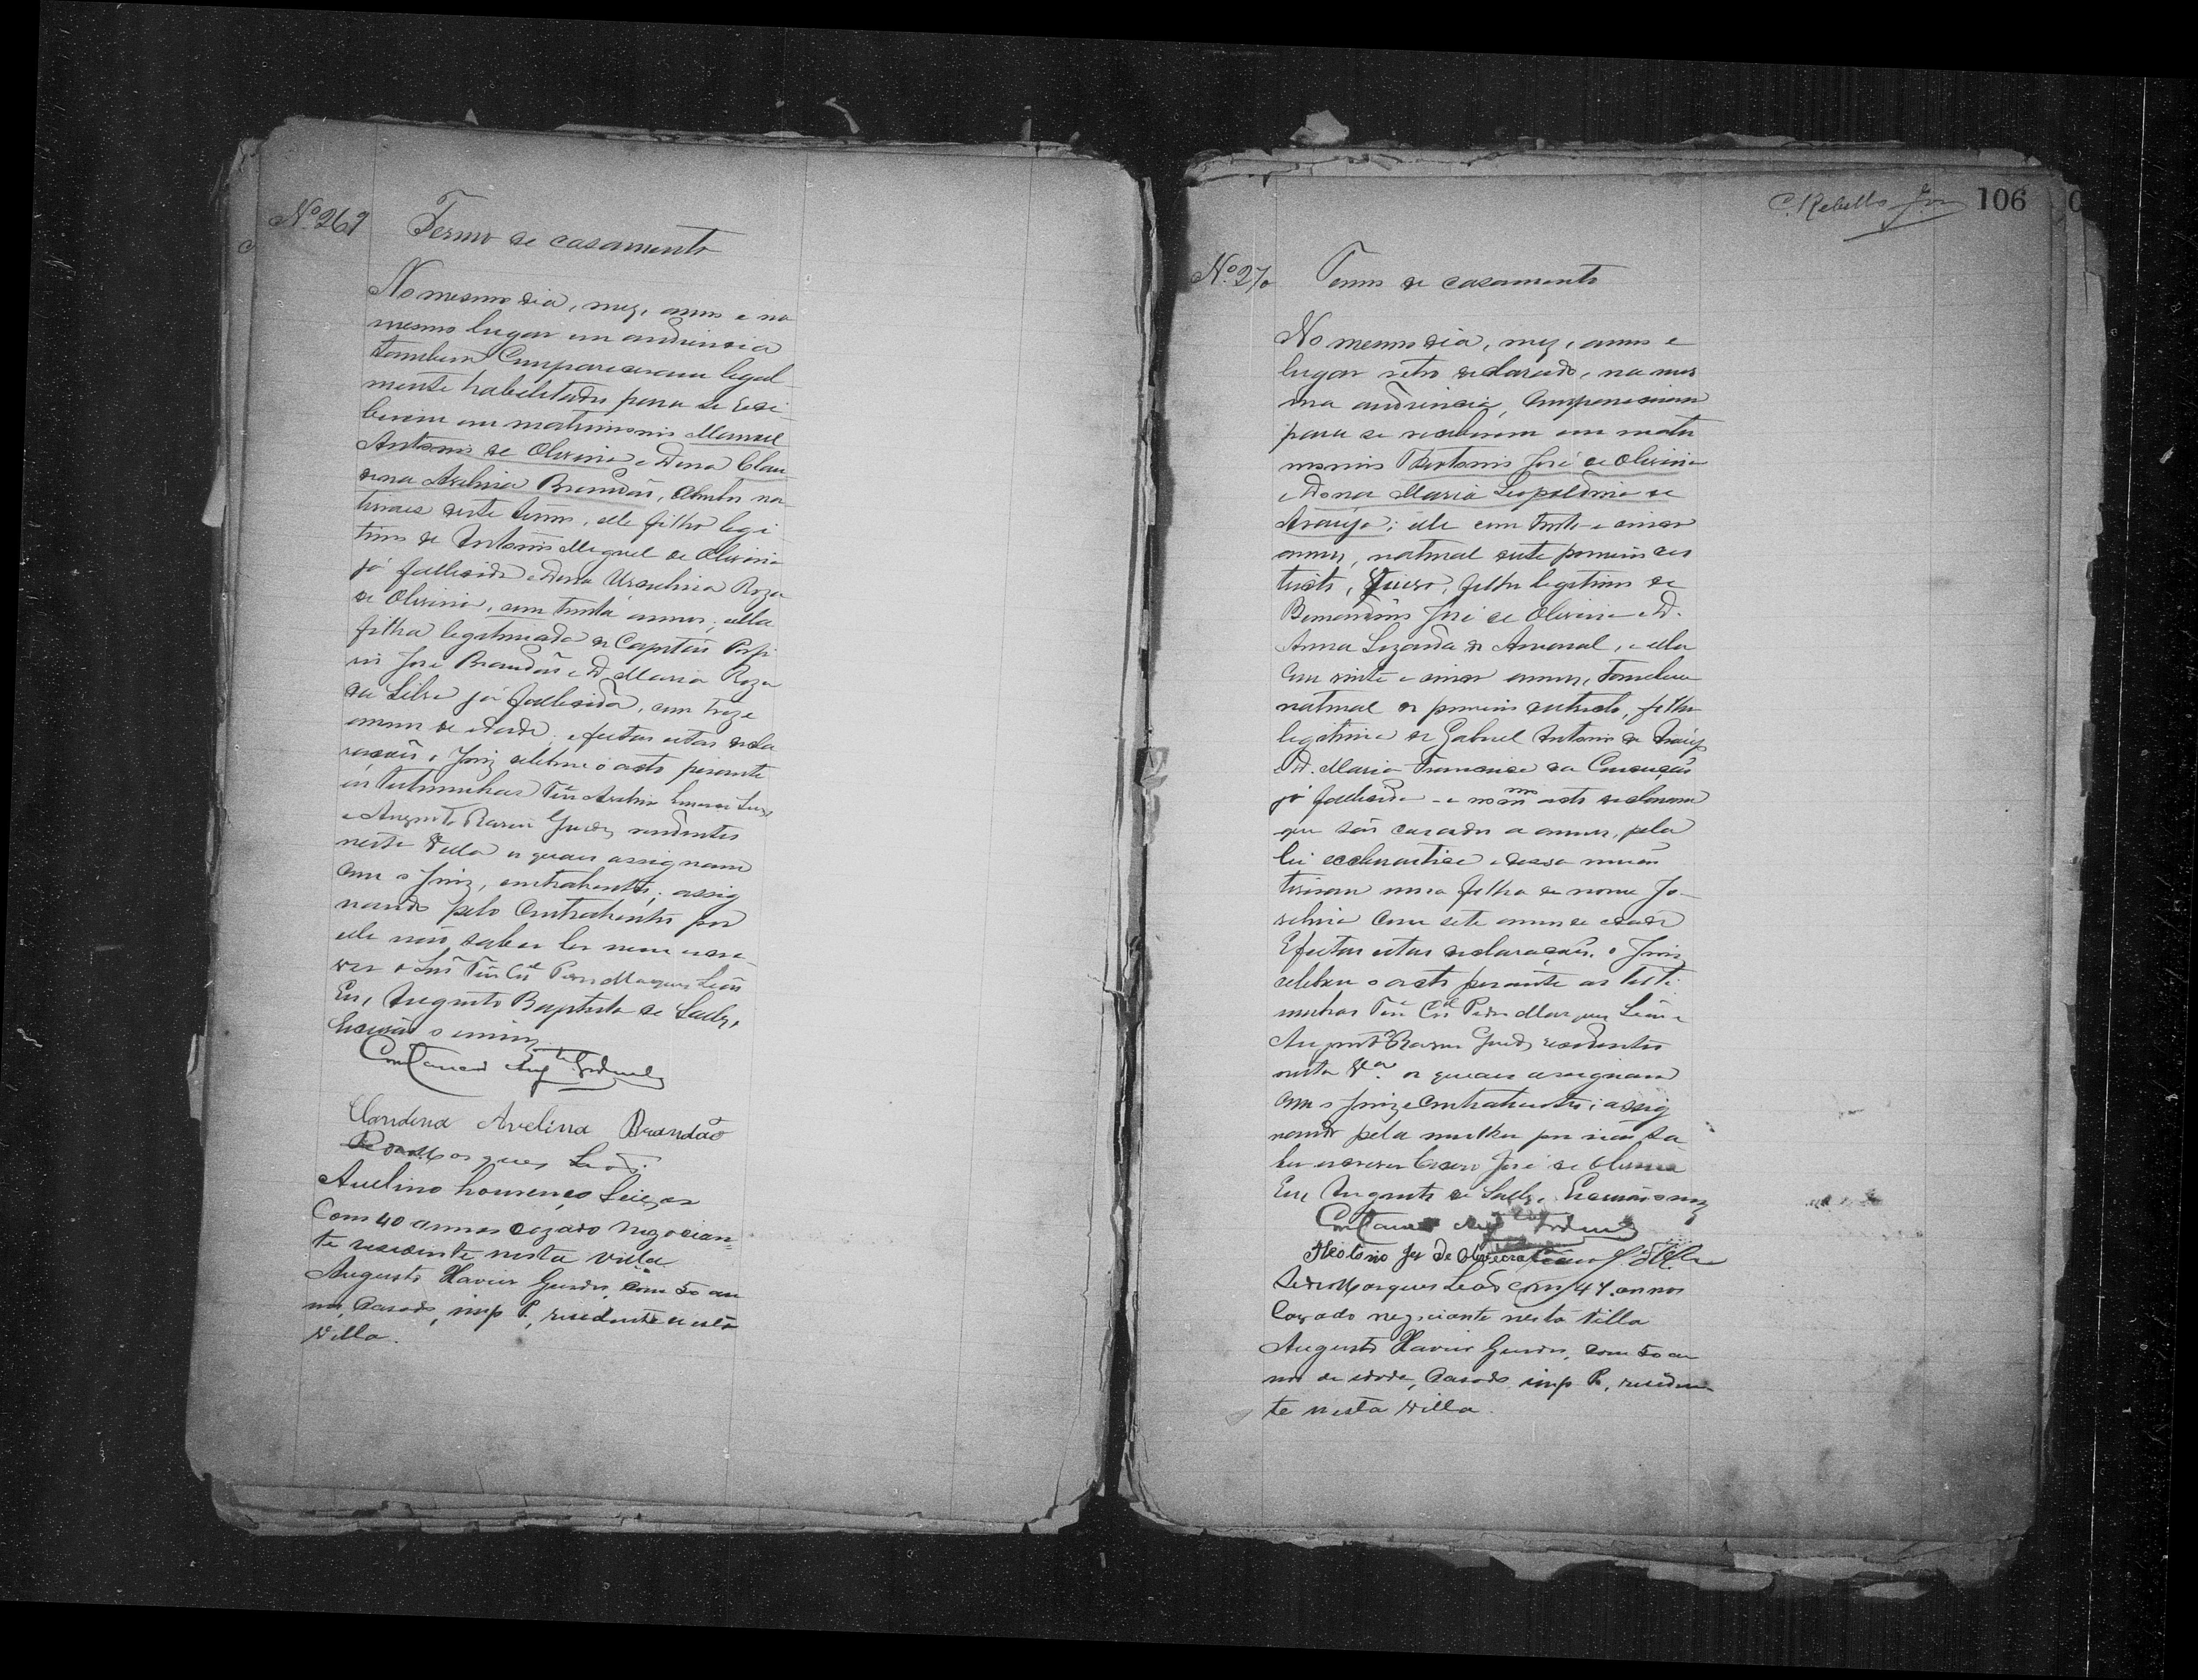 Nº 269
Termo de casamento
No mesmo dia, mez, anno e no
mesmo lugar em audiencia
tambem Compareceram legal
mente habilitados para se rece
berem em matrimonio Manoel
Antonio de Oliveira e Dona Clau
dina Avelina Brandão, ambos na
turaes deste termo, elle filho legi
timo de Antonio Miguel de Oliveira
já fallecido e Dona Ursulina Roza
de Oliveira, com trinta annos; ella
filha legitimada do Capitão Porfi
rio José Brandão e D. Maria Roza
da Silva já fallecida, com treze
annos de edade; e feitas estas decla
rações o Juiz celebrou o acto perante
as testemunhas Tên Avelino
e Augusto Xavier Guedes residentes
nesta Villa os quaes assignam
com o Juiz, contrahentes; assig
nando pelo Contrahente por
elle não saber ler nem escre
ver o Tên Cel Pedro Marques Leão
Eu, Augusto Baptista de Salles,
Escrivão o escrevi
Claudina Avelina Brandão
Pedro Marques Leão.
Avelino Lourenço
Com 40 annos cazado negocian=
te residente nesta villa
Augusto Xavier Guedes, com 50 an
nos, Casado, emp P., residente nesta
Villa.
C. Rebello Jor
106
Nº 270
Termo de casamento
No mesmo dia, mez, anno e
lugar retro declarado, na mes
ma audiencia, Compareceram
para se receberem em matri
monio Theotonio José de Oliveira
e Dona Maria Leopoldina de
Araujo; elle com trinta e cinco
annos, natural deste primeiro des
tricto, filho legitimo de
Bernardino José de Oliveira e D.
Anna de Amaral, e ella
com vinte e cinco annos, tambem
natural do primeiro destricto, filha
legitima de Gabriel Antonio de Araujo
e D. Maria Francisca da Conceição
já fallecida e no mesmo acto declararam
que são casados a annos, pela
lei ecclesiastica e dessa união
tiveram uma filha de nome Jo-
velina com sete annos de edade
E feitas estas declarações, o Juiz
celebrou o acto perante as teste
munhas Tên Cel Pedro Marques Leão e
Augusto Xavier Guedes residentes
nesta Va. os quaes assignam
com o Juiz e contrahentes; assig
nando pela mulher por não sa
ber escrever Cicero José de Oliveira
Eu, Augusto de Salles, Escrivão o escrevi
Theotonio José de Oliveira
Pedro Marques Leão com 47 annos
Cazado negociante nesta Villa
Augusto Xavier Guedes, com 50 an
nos de edade, Casado, emp P., residen
te nesta Villa.